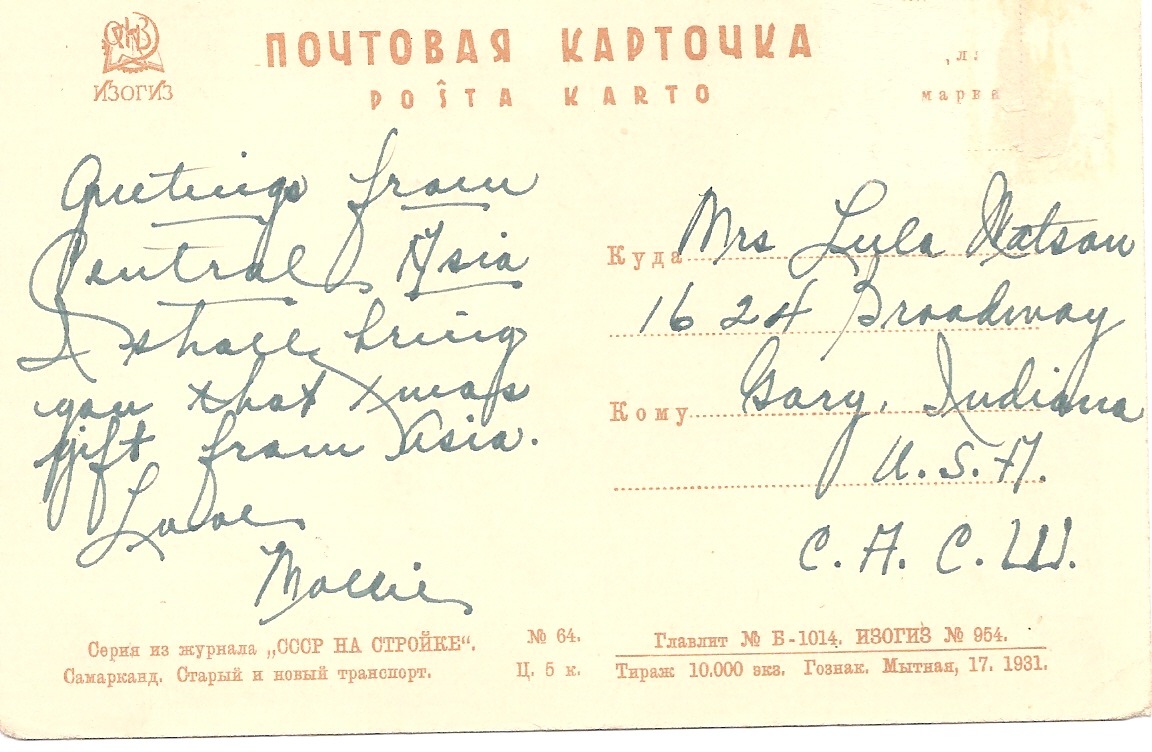 ИЗОГИЗ
ПОЧТОВАЯ КАРТОЧКА
POŜTA KARTO
марка
Greetings from
Central Asia
I shall bring
you that Xmas
gift from Asia.
Love
Mollie
Куда Mrs Lula Watson
1624 Broadway
Кому Gary, Indiana
U.S.A.
С.А.С.Ш.
Серия из журнала „СССР НА СТРОЙКЕ“.
Самарканд. Старый и новый транспорт.
№ 64.
Ц. 5 к.
Главлит № Б-1014. ИЗОГИЗ № 954.
Тираж 10.000 экз. Гознак. Мытная, 17. 1931.